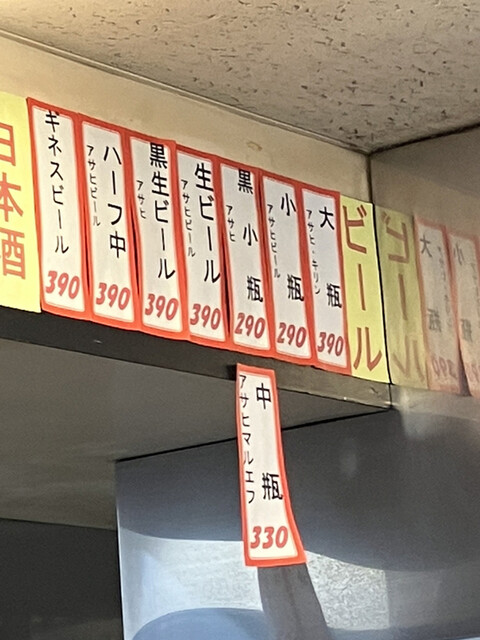 ビール
大瓶
アサヒ・キリン
390
小瓶
アサヒビール
290
黒小瓶
アサヒ
290
生ビール
アサヒビール
390
黒生ビール
アサヒ
390
ハーフ中
アサヒビール
390
ギネスビール
390
日本酒
中瓶
アサヒマルエフ
330
ビール
大瓶
390
小瓶